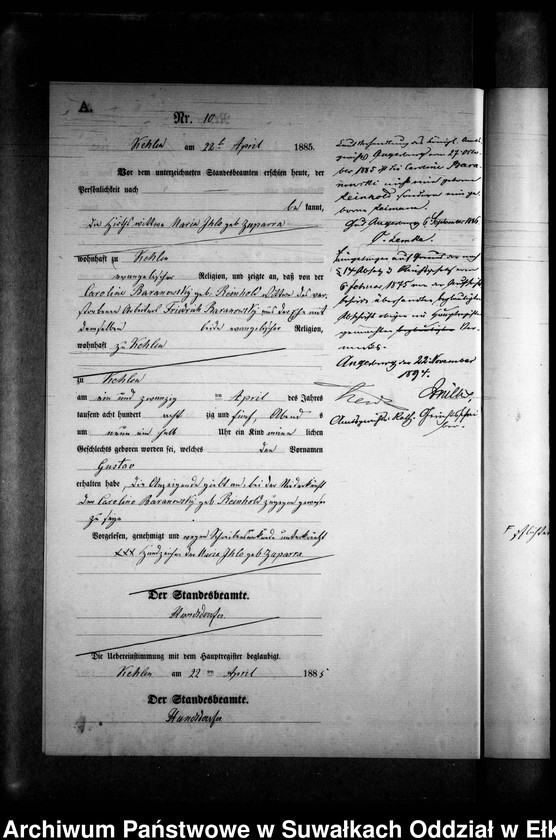 A.
Nr. 10
Kehlen am 22t April 1885.
Vor dem unterzeichneten Standesbeamten erschien heute, der
Persönlichkeit nach
be kannt,
die Wittwe Maria Ihlo geb Zaparra
wohnhaft zu Kehlen
evangelischer Religion, und zeigte an, daß von der
Caroline Baranowsky geb. Reinhold, Wittwe des ver-
storbenen Arbeiters Friedrich Baranowsky aus der Ehe mit
demselben beide evangelischer Religion,
wohnhaft zu Kehlen
zu Kehlen
am ein und zwanzig ten April des Jahres
tausend acht hundert acht zig und fünf, Abend s
um neun ein halb Uhr ein Kind männ lichen
Geschlechts geboren worden sei, welches den Vornamen
Gustav
erhalten habe, die Anzeigende giebt an, bei der Niederkunft
der Caroline Baranowsky geb Reinhold zugegen gewesen
zu sein
Vorgelesen, genehmigt und wegen Schreibensunkunde unterkreuzt
XXX Handzeichen der Maria Ihlo geb Zaparra
Der Standesbeamte.
Hundsdorfer
Die Uebereinstimmung mit dem Hauptregister beglaubigt.
Kehlen am 22 ten April 1885
Der Standesbeamte.
Hundsdorfer
Laut Verhandlung des Königl. Amts
gerichts Angerburg vom 27 Octo-
ber 1885 ist die Caroline Bara
nowski nicht eine geborne
Reinhold sondern eine ge-
borne Reimann.
Angerburg 6 September 1886
Lemke.
Eingetragen auf Grund des
§ 14 Absatz 2 Reichsgesetz vom
6 Februar 1875
Abschrift obigen im Hauptregister
gemachten beglaubigten Ver-
merks.
Angerburg den 22 November
1894.
Amtsgerichts Rath. Gerichtsschrei
ber.
Archiwum Państwowe w Suwałkach Oddział w Ełk